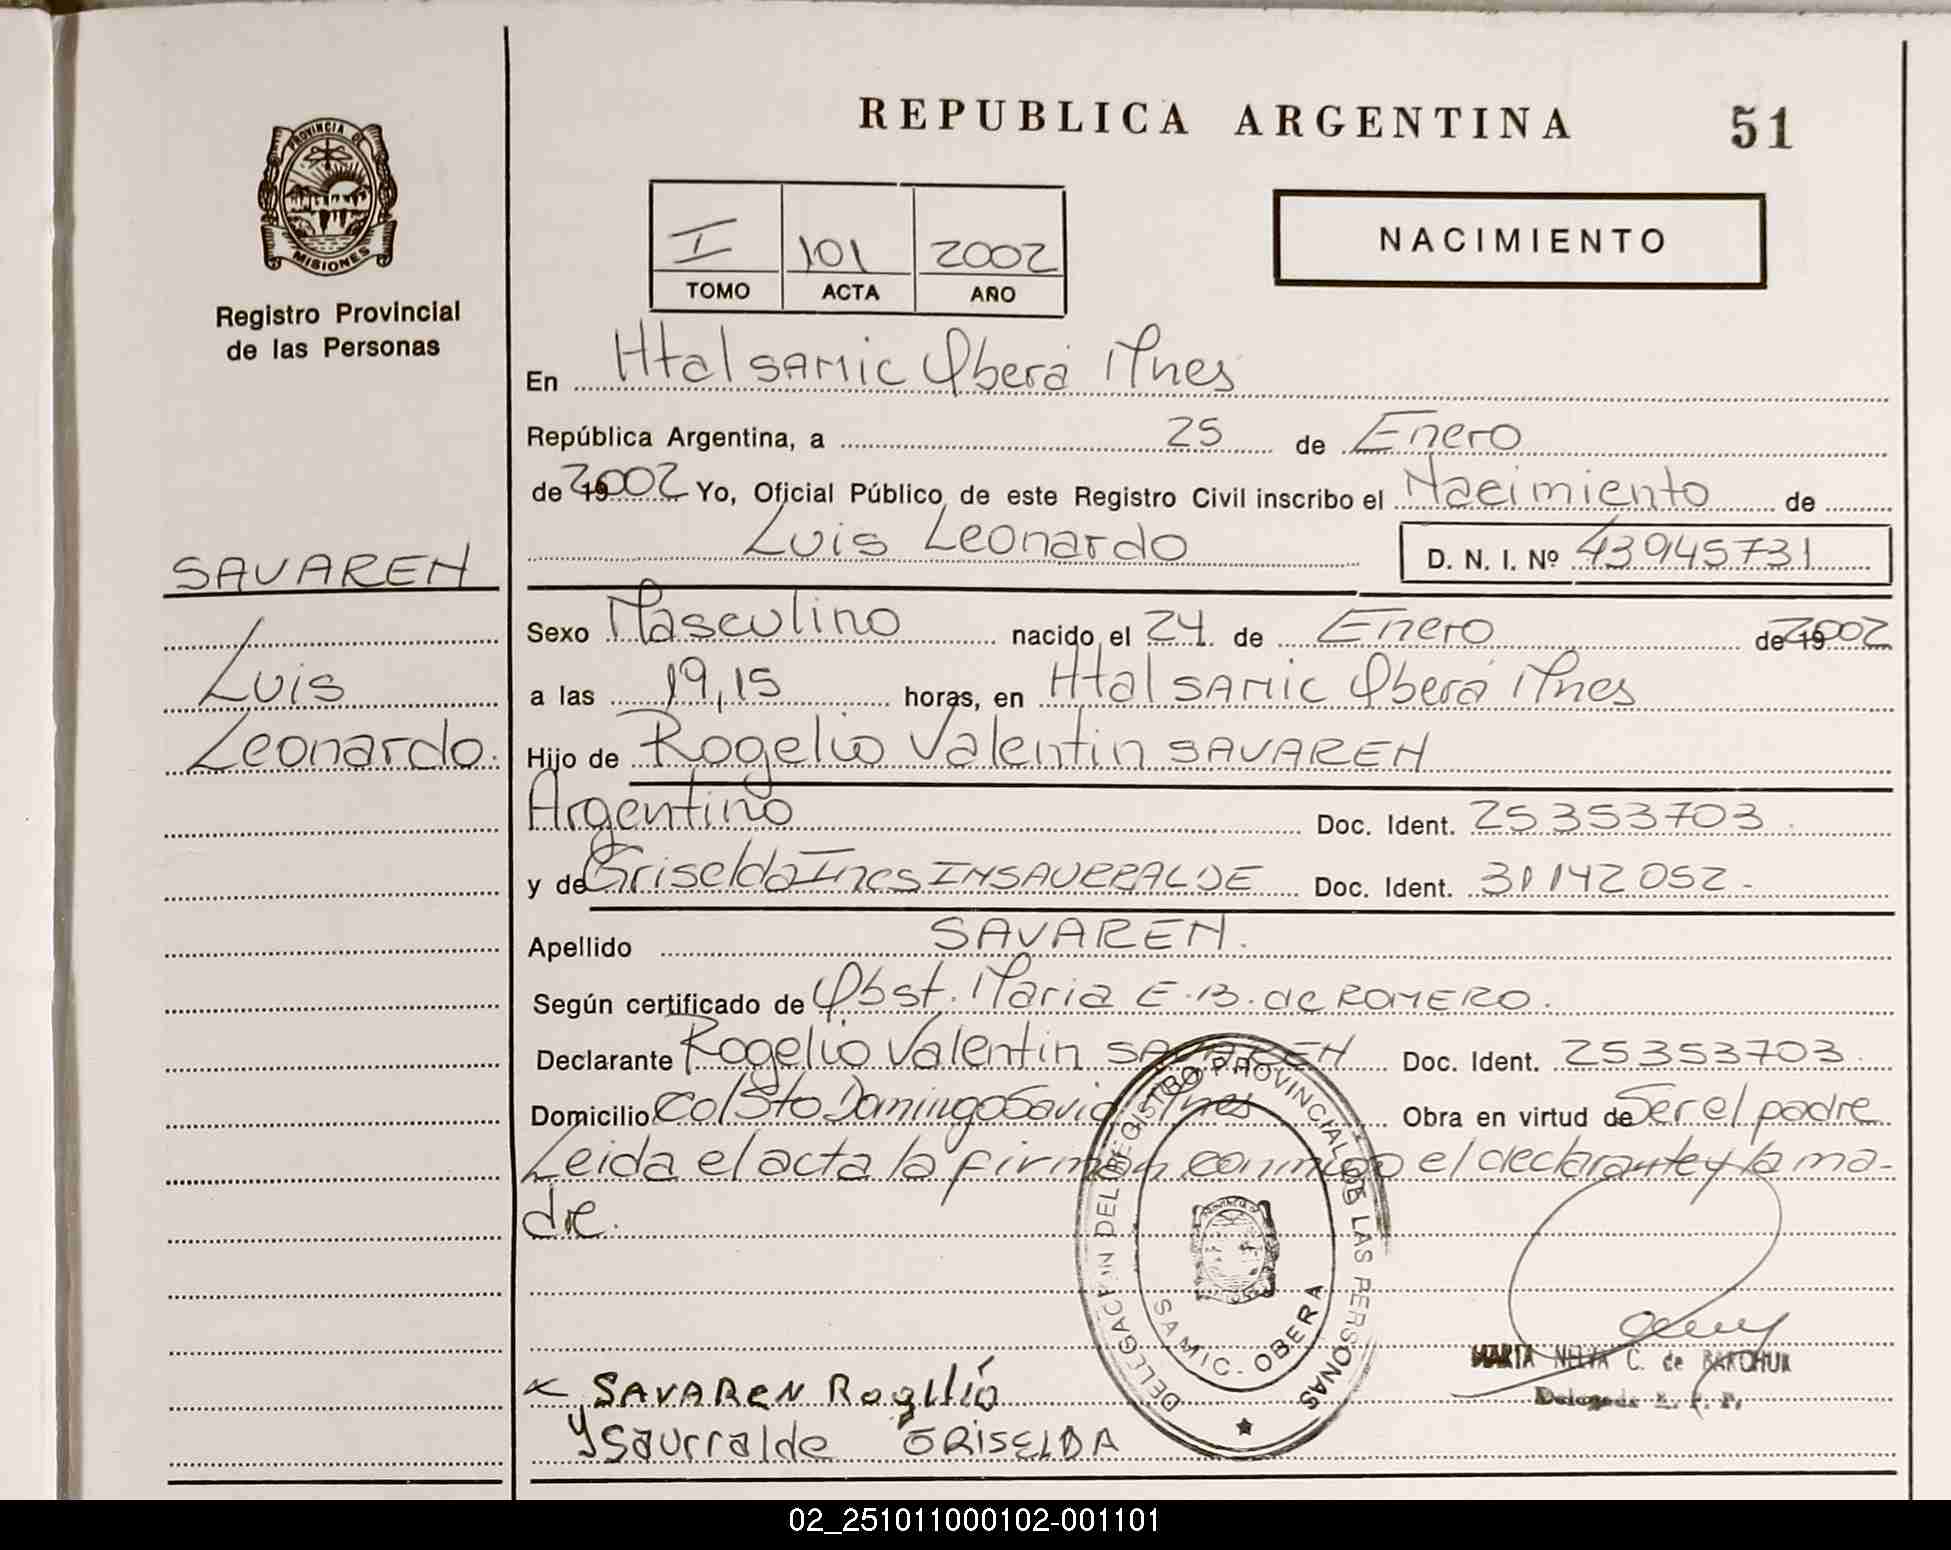 REPUBLICA ARGENTINA 51
PROVINCIA DE
MISIONES
Registro Provincial
de las Personas
I 101 2002
TOMO ACTA AÑO
NACIMIENTO
En Htal SAMIC Oberá Mnes
República Argentina, a 25 de Enero
de 2002 Yo, Oficial Público de este Registro Civil inscribo el Nacimiento de
Luis Leonardo D. N. I. Nº 43945731
SAVAREN
Luis
Leonardo.
Sexo Masculino nacido el 24 de Enero de 2002
a las 19,15 horas, en Htal SAMIC Oberá Mnes
Hijo de Rogelio Valentin SAVAREN
Argentino Doc. Ident. 25353703.
y de Griselda Ines INSAURRALDE Doc. Ident. 31142052.
Apellido SAVAREN.
Según certificado de Obst. Maria E.B. de ROMERO.
Declarante Rogelio Valentin SAVAREN Doc. Ident. 25353703.
Domicilio Col Sto Domingo Savio Mnes Obra en virtud de Ser el padre
Leida el acta la firman conmigo el declarante y la ma-
dre.
DELEGACION DEL REGISTRO PROVINCIAL DE LAS PERSONAS
SAMIC. OBERA
MARTA NELVA C. de BARCHUK
Delegada R. P. P.
SAVAREN Rogelio
Ysaurralde GRISELDA
02_251011000102-001101